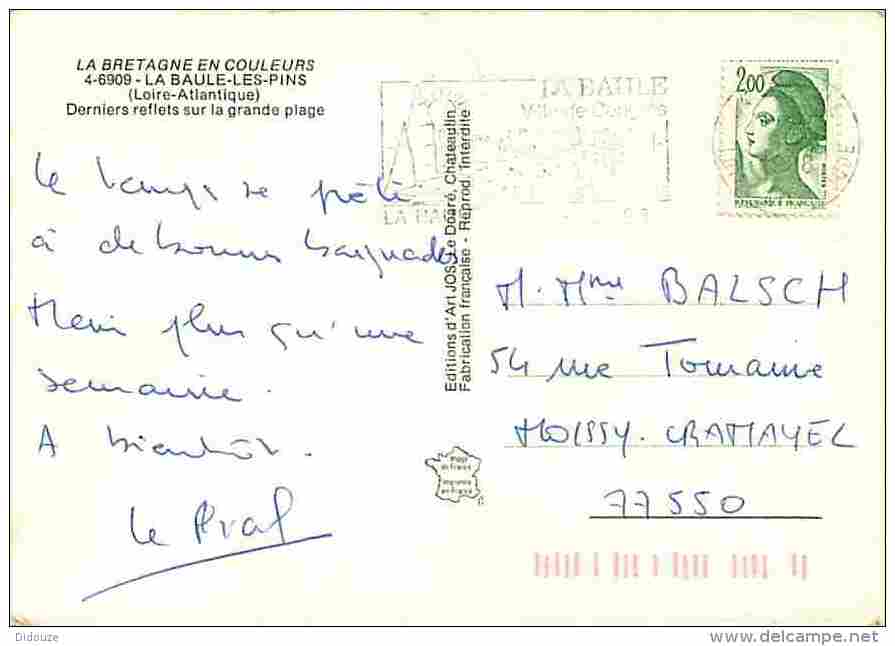 LA BRETAGNE EN COULEURS
4-6909 - LA BAULE-LES-PINS
(Loire-Atlantique)
Derniers reflets sur la grande plage
Le temps se prête
à de bonnes baignades
Mais plus qu'une
semaine.
A bientôt.
LA BAULE
Ville de Congrès
2,00
REPUBLIQUE FRANÇAISE
Editions d'Art JOS Le Doaré, Chateaulin
Fabrication française - Reprod. interdite
M. Mme BALSCH
54 rue Tomaine
MOISSY. CRAMAYEL
77550
made
in France
imprimé
en France
Didouze
delcampe.net